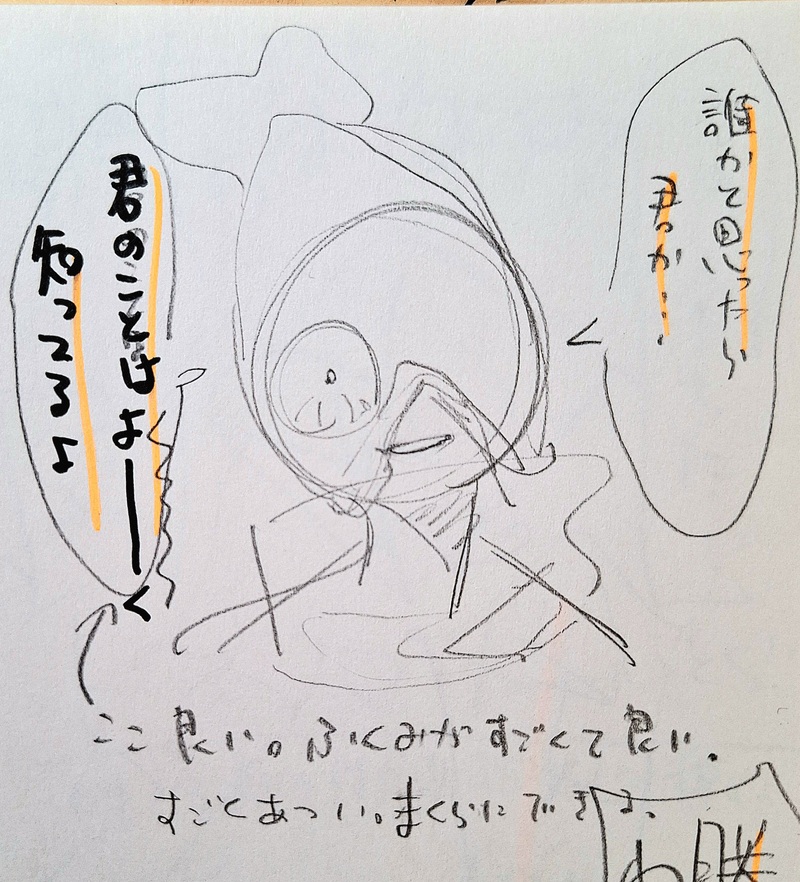 誰かと思ったら
君か…
君のことはよーく
知ってるよ
ここ良い。ふくみがすごくて良い.
すごくあつい。まくらにできる。